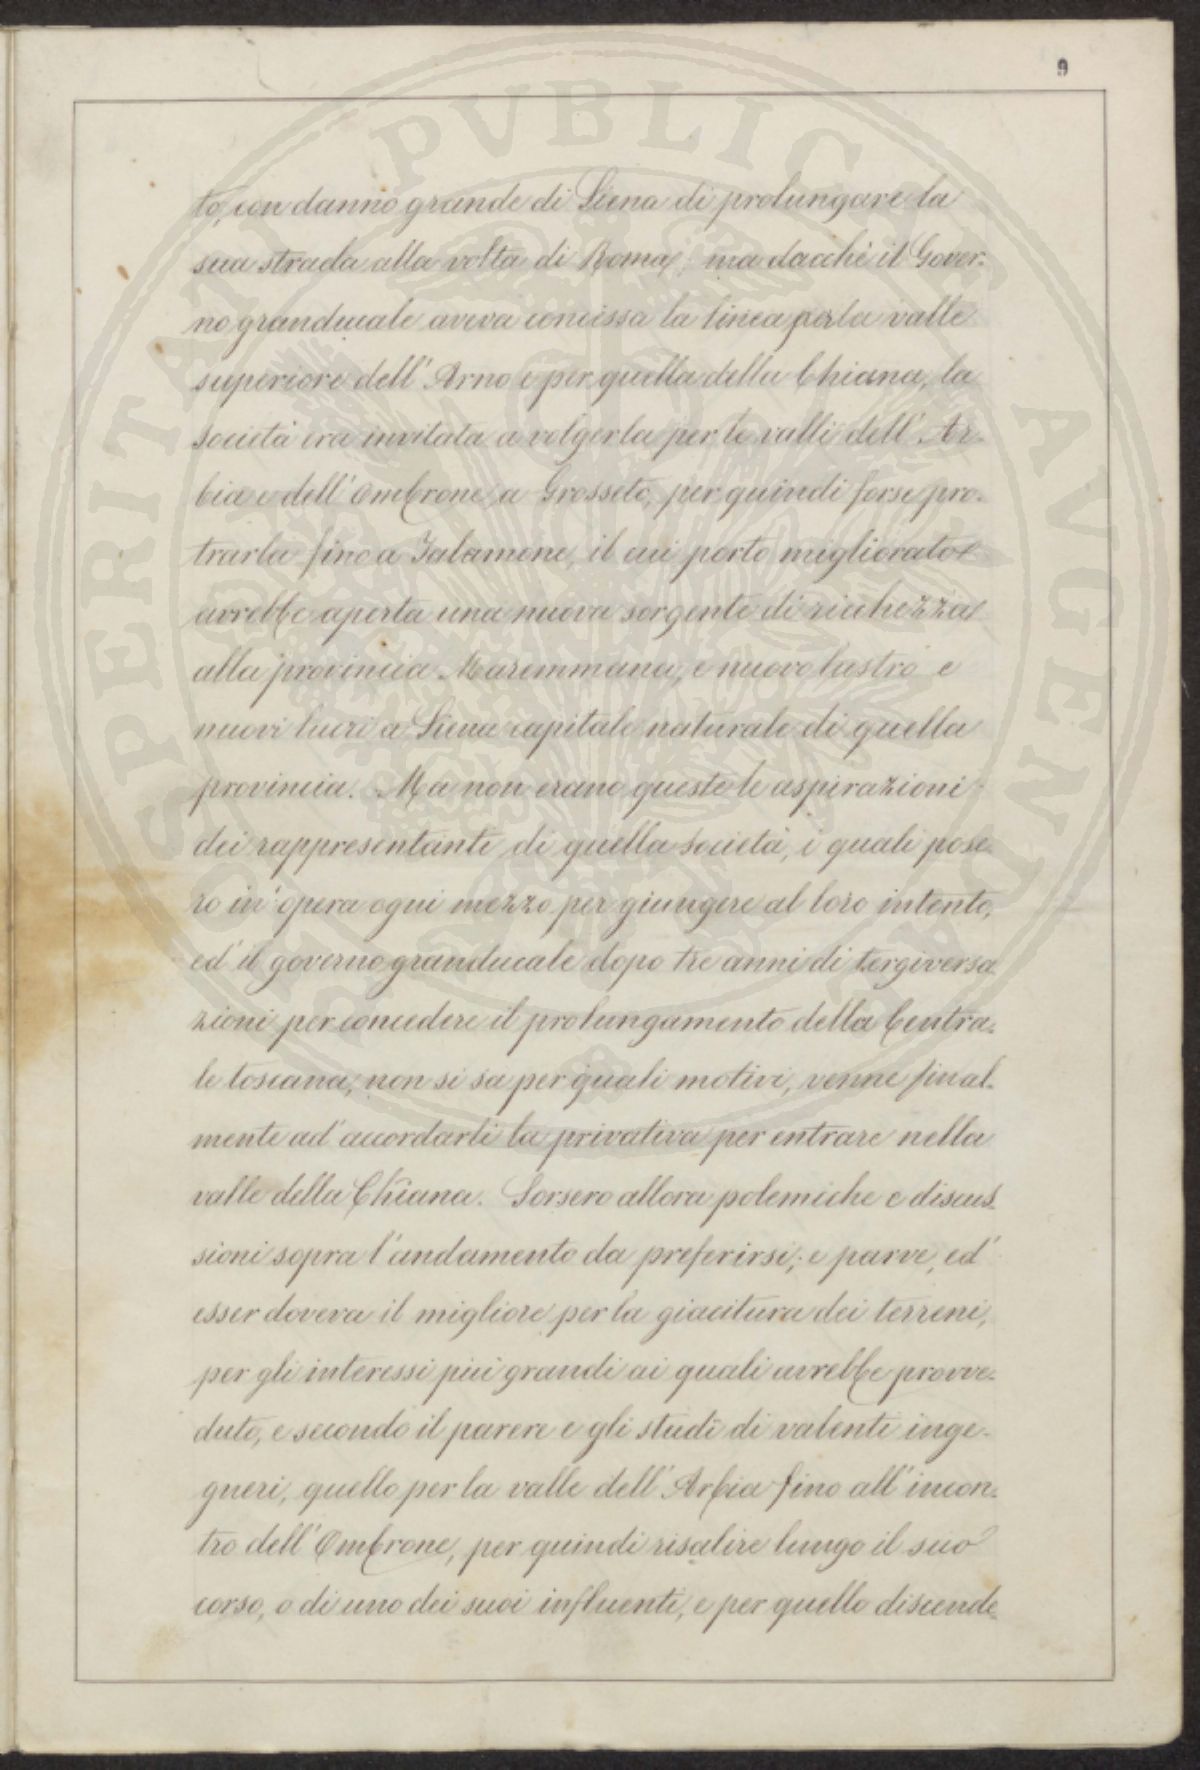 9
to, con danno grande di Siena di prolungare la
sua strada alla volta di Roma; ma dacchè il Gover-
no granducale aveva concissa la linea per la valle
superiore dell' Arno e per quella della Chiana, la
società era invitata a volgerla per le valli dell' Ar-
bia e dell' Ombrone a Grosseto, per quindi forse pro-
trarla fino a Talamone, il cui porto migliorato
avrebbe aperta una nuova sorgente di ricchezza
alla provincia Maremmana, e nuovo lustro e
nuovi lucri a Siena capitale naturale di quella
provincia. Ma non erano queste le aspirazioni
dei rappresentanti di quella società, i quali pose-
ro in opera ogni mezzo per giungere al loro intento,
ed il governo granducale dopo tre anni di tergiversa
zioni per concedere il prolungamento della Centra-
le toscana, non si sa per quali motivi, venne final-
mente ad accordarli la privativa per entrare nella
valle della Chiana. Sorsero allora polemiche e discus-
sioni sopra l'andamento da preferirsi; e parve, ed
esser doveva il migliore per la giacitura dei terreni,
per gli interessi più grandi ai quali avrebbe provve-
duto, e secondo il parere e gli studi di valenti inge-
gneri, quello per la valle dell' Arbia fino all' incon-
tro dell' Ombrone, per quindi risalire lungo il suo
corso, o di uno dei suoi influenti, e per quello discende-
PROSPERITATI PVBLICAE AVGENDAE